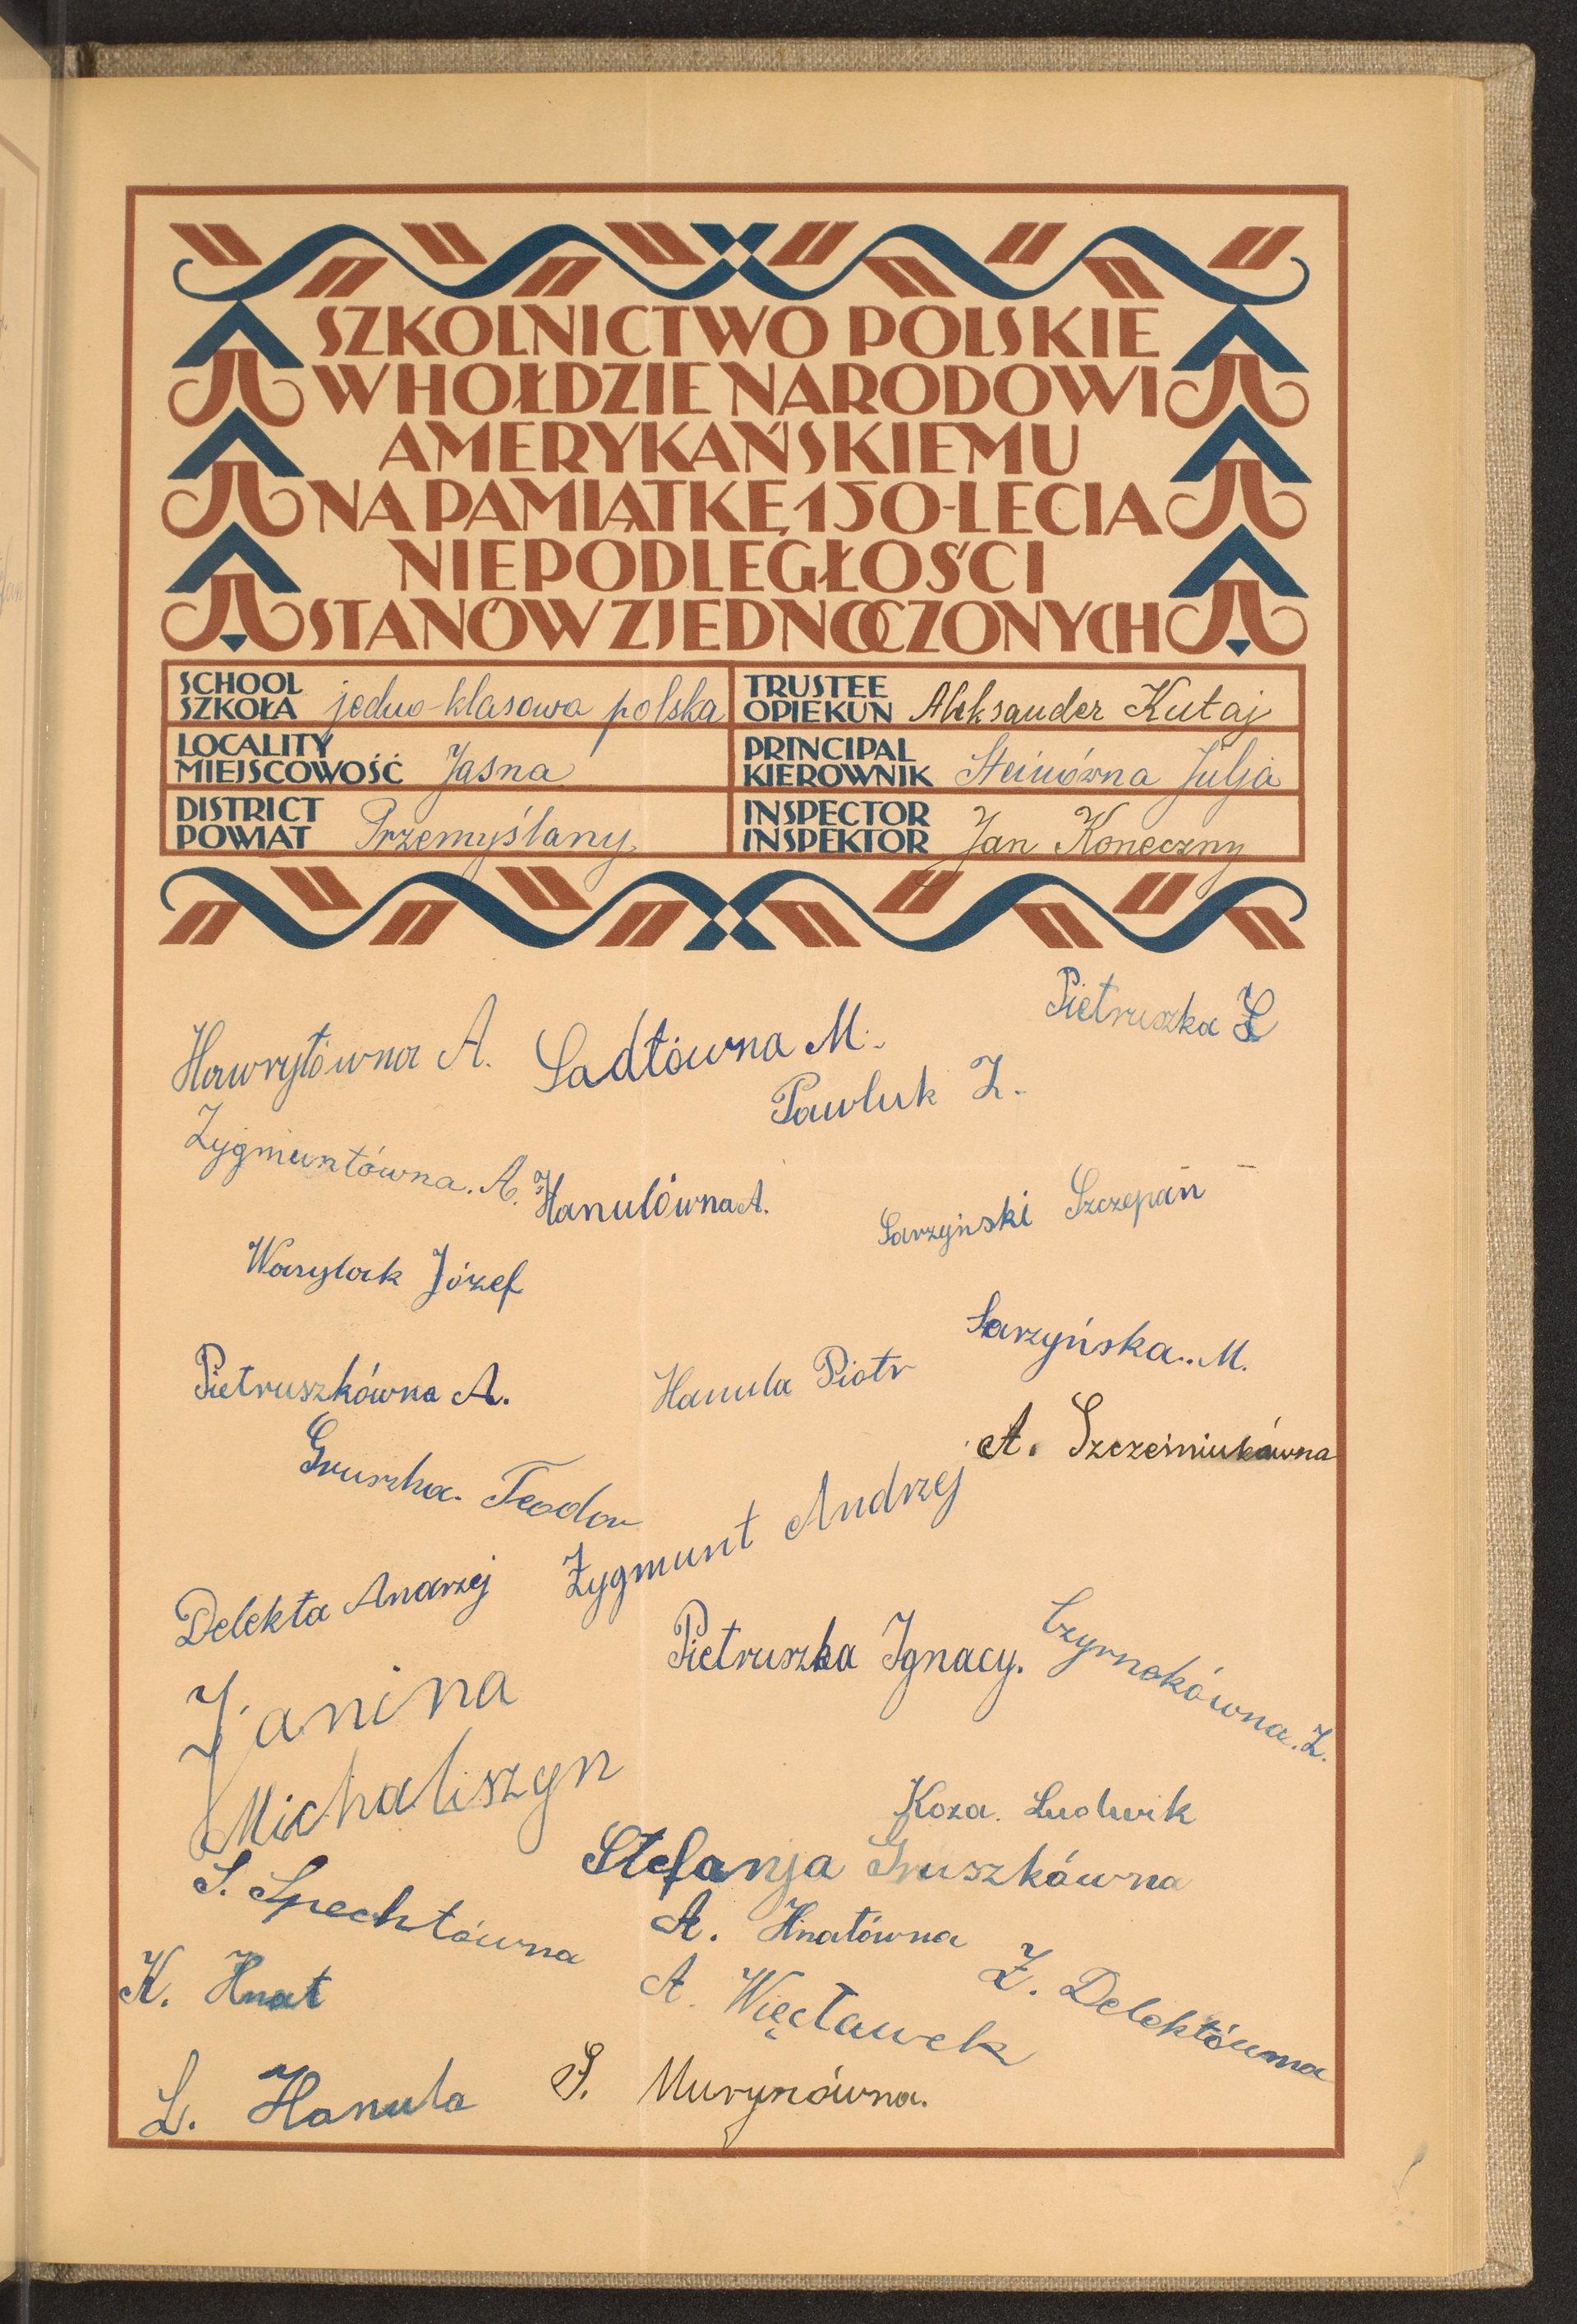 SZKOLNICTWO POLSKIE
W HOŁDZIE NARODOWI
AMERYKAŃSKIEMU
NA PAMIĄTKĘ 150-LECIA
NIEPODLEGŁOŚCI
STANÓW ZJEDNOCZONYCH
SCHOOL
SZKOŁA jedno-klasowa polska
TRUSTEE
OPIEKUN Aleksander Kutaj
LOCALITY
MIEJSCOWOŚĆ Jasna
PRINCIPAL
KIEROWNIK Steinówna Julja
DISTRICT
POWIAT Przemyślany
INSPECTOR
INSPEKTOR Jan Koneczny
Pietruszka
Hawryłówna A. Sadłówna M.
Pawluk Z.
Zygmuntówna. A. Hanulówna A.
Sarzyński Szczepan
Wasylak Józef
Sarzyńska.. M.
Pietruszkówna A. Hanula Piotr
A. Szcześniukówna
Gruszka. Teodor
Zygmunt Andrzej
Delekta Andrzej
Pietruszka Ignacy. Czyrnokówna. Z.
Janina
Michaliszyn
Koza. Ludwik
Stefanja Gruszkówna
S. Spechtówna
A. Hnatówna
K. Hnat
A. Więcławek
Z. Delektówna
L. Hanula S. Murynówna.